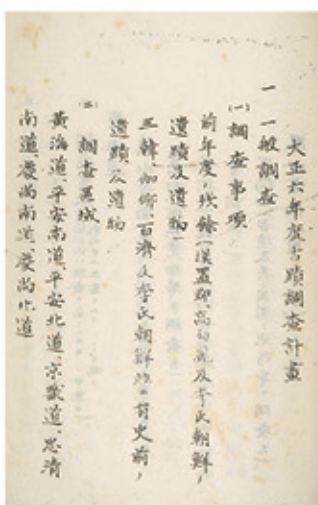 大正六年度古蹟調査計畫
一 一般調査
(一) 調査事項
前年度ノ殘餘(漢置郡、高句麗及李氏朝鮮ノ
遺蹟及遺物
三韓、加耶、百濟及李氏朝鮮並ニ有史前ノ
遺蹟及遺物
(二) 調査區域
黄海道、平安南道、平安北道、京畿道、忠清
南道、慶尚南道、慶尚北道